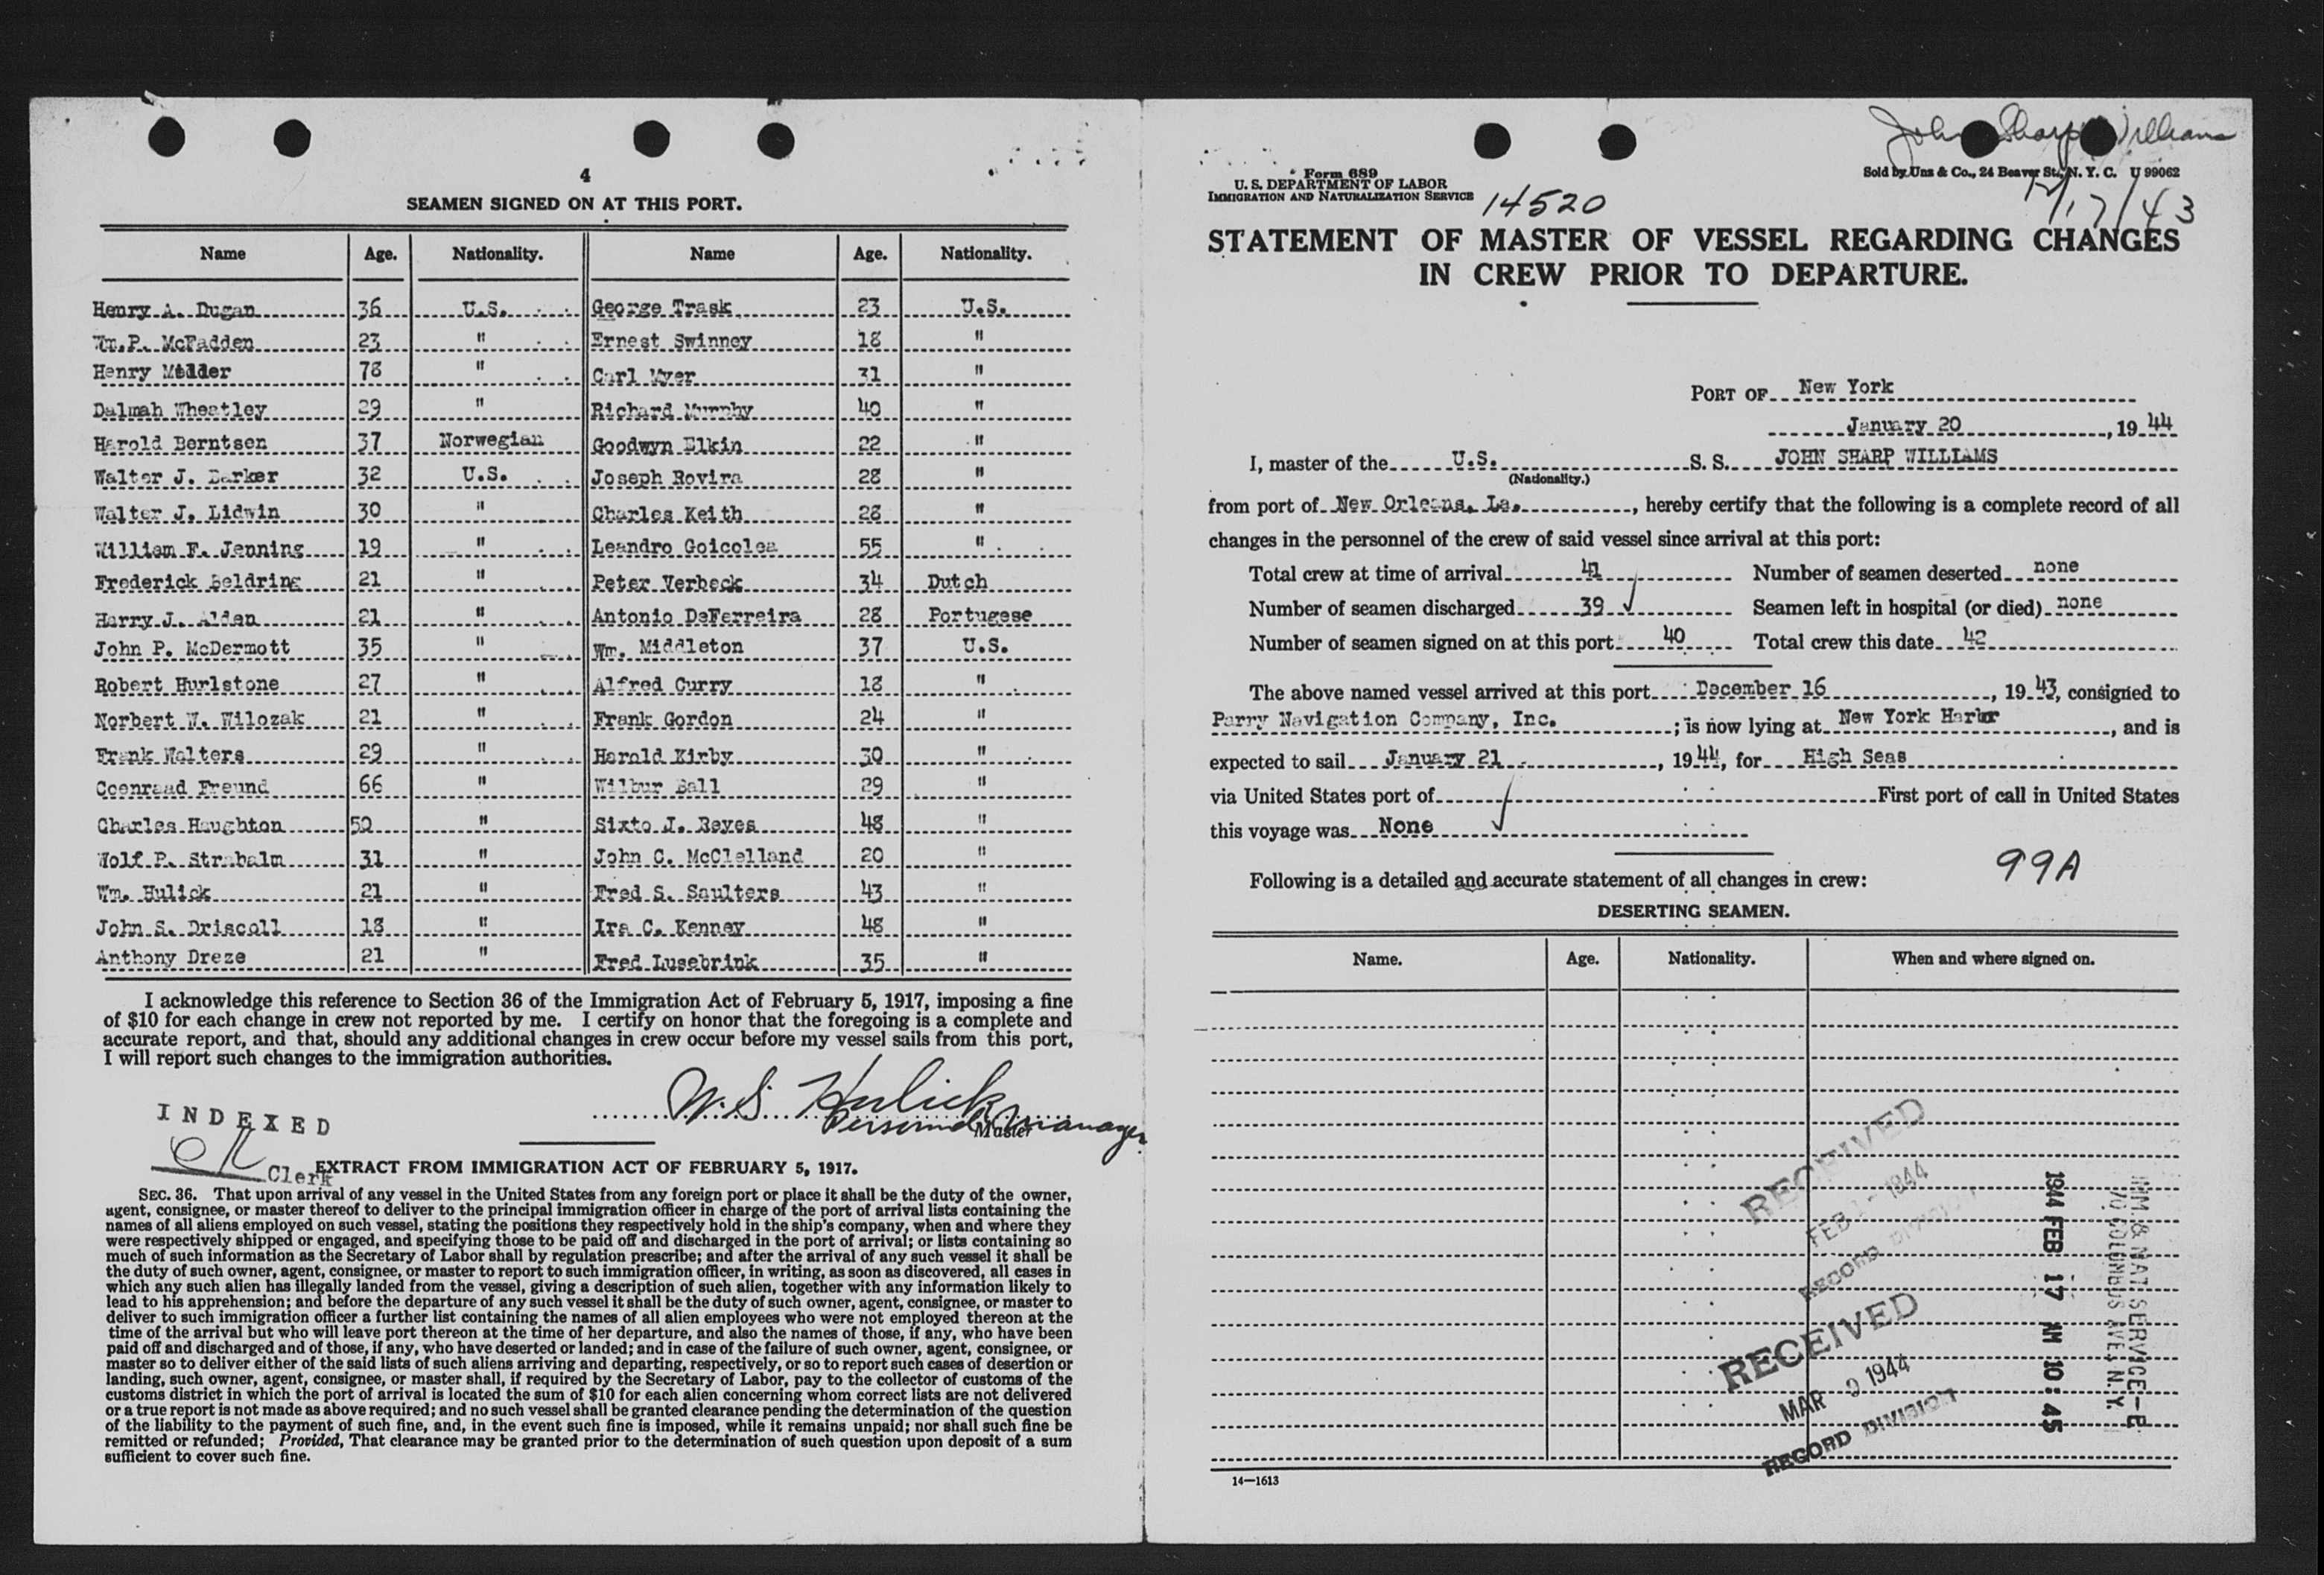 4
SEAMEN SIGNED ON AT THIS PORT.
Name Age. Nationality. Name Age. Nationality.
Henry A. Dugan 36 U.S. George Trask 23 U.S.
Wm.P. McFadden 23 " Ernest Swinney 18 "
Henry Mulder 78 " Carl Myer 31 "
Dalmah Wheatley 29 " Richard Murphy 40 "
Harold Berntsen 37 Norwegian Goodwyn Elkin 22 "
Walter J. Barker 32 U.S. Joseph Rovira 28 "
Walter J. Lidwin 30 " Charles Keith 28 "
William F. Jenning 19 " Leandro Goicolea 55 "
Frederick Beldring 21 " Peter Verbeck 34 Dutch
Harry J. Alden 21 " Antonio DeFerreira 28 Portugese
John P. McDermott 35 " Wm. Middleton 37 U.S.
Robert Hurlstone 27 " Alfred Curry 18 "
Norbert W. Wilozak 21 " Frank Gordon 24 "
Frank Walters 29 " Harold Kirby 30 "
Coenraad Freund 66 " Wilbur Ball 29 "
Charles Haughton 50 " Sixto J. Reyes 48 "
Wolf P. Strabalm 31 " John C. McClelland 20 "
Wm. Hulick 21 " Fred S. Saulters 43 "
John S. Driscoll 18 " Ira C. Kenney 48 "
Anthony Dreze 21 " Fred Lusebrink 35 "
I acknowledge this reference to Section 36 of the Immigration Act of February 5, 1917, imposing a fine
of $10 for each change in crew not reported by me. I certify on honor that the foregoing is a complete and
accurate report, and that, should any additional changes in crew occur before my vessel sails from this port,
I will report such changes to the immigration authorities.
W. S. Hulick
Personnel Manager
Master
INDEXED
Clerk
EXTRACT FROM IMMIGRATION ACT OF FEBRUARY 5, 1917.
SEC. 36. That upon arrival of any vessel in the United States from any foreign port or place it shall be the duty of the owner,
agent, consignee, or master thereof to deliver to the principal immigration officer in charge of the port of arrival lists containing the
names of all aliens employed on such vessel, stating the positions they respectively hold in the ship's company, when and where they
were respectively shipped or engaged, and specifying those to be paid off and discharged in the port of arrival; or lists containing so
much of such information as the Secretary of Labor shall by regulation prescribe; and after the arrival of any such vessel it shall be
the duty of such owner, agent, consignee, or master to report to such immigration officer, in writing, as soon as discovered, all cases in
which any such alien has illegally landed from the vessel, giving a description of such alien, together with any information likely to
lead to his apprehension; and before the departure of any such vessel it shall be the duty of such owner, agent, consignee, or master to
deliver to such immigration officer a further list containing the names of all alien employees who were not employed thereon at the
time of the arrival but who will leave port thereon at the time of her departure, and also the names of those, if any, who have been
paid off and discharged and of those, if any, who have deserted or landed; and in case of the failure of such owner, agent, consignee, or
master so to deliver either of the said lists of such aliens arriving and departing, respectively, or so to report such cases of desertion or
landing, such owner, agent, consignee, or master shall, if required by the Secretary of Labor, pay to the collector of customs of the
customs district in which the port of arrival is located the sum of $10 for each alien concerning whom correct lists are not delivered
or a true report is not made as above required; and no such vessel shall be granted clearance pending the determination of the question
of the liability to the payment of such fine, and, in the event such fine is imposed, while it remains unpaid; nor shall such fine be
remitted or refunded; Provided, That clearance may be granted prior to the determination of such question upon deposit of a sum
sufficient to cover such fine.
John Sharp Williams
Form 689
U. S. DEPARTMENT OF LABOR
IMMIGRATION AND NATURALIZATION SERVICE
Sold by Unz & Co., 24 Beaver St., N. Y. C. U 99062
14520
12/17/43
STATEMENT OF MASTER OF VESSEL REGARDING CHANGES
IN CREW PRIOR TO DEPARTURE.
PORT OF New York
January 20, 19 44
I, master of the U.S. S. S. JOHN SHARP WILLIAMS
(Nationality.)
from port of New Orleans, La., hereby certify that the following is a complete record of all
changes in the personnel of the crew of said vessel since arrival at this port:
Total crew at time of arrival 41 Number of seamen deserted none
Number of seamen discharged 39 Seamen left in hospital (or died) none
Number of seamen signed on at this port 40 Total crew this date 42
The above named vessel arrived at this port December 16, 19 43, consigned to
Parry Navigation Company, Inc.; is now lying at New York Harbr, and is
expected to sail January 21, 19 44, for High Seas
via United States port of First port of call in United States
this voyage was None
99A
Following is a detailed and accurate statement of all changes in crew:
DESERTING SEAMEN.
Name. Age. Nationality. When and where signed on.
RECEIVED
FEB 1944
RECORD DIVISION
RECEIVED
MAR 9 1944
RECORD DIVISION
1944 FEB 17 AM 10:45
IMM & NAT SERVICE-E
70 COLUMBUS AVE. N.Y.
14—1613